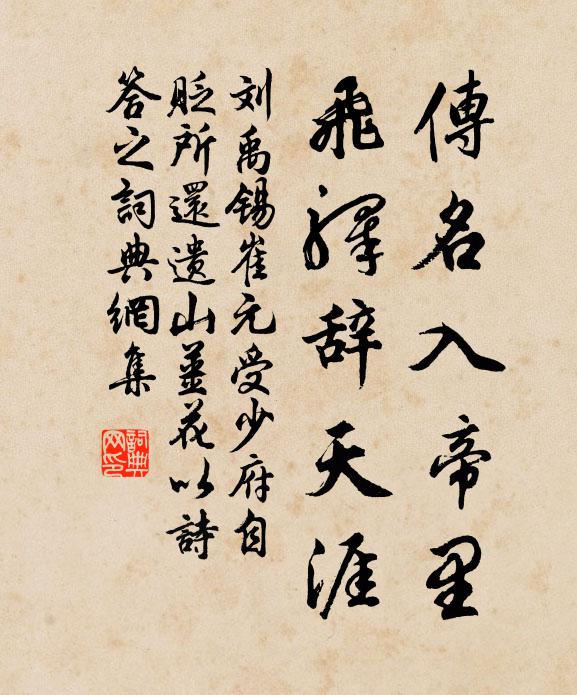 傳名入帝里
飛驛辞天涯
刘禹锡崔元受少府自
貶所還遗山薑花以詩
答之詞典網集
詞典网印